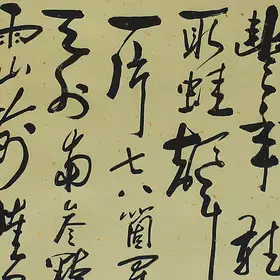 豐年聽
取蛙聲
一片七八箇星
天外兩叁點
雨山前舊